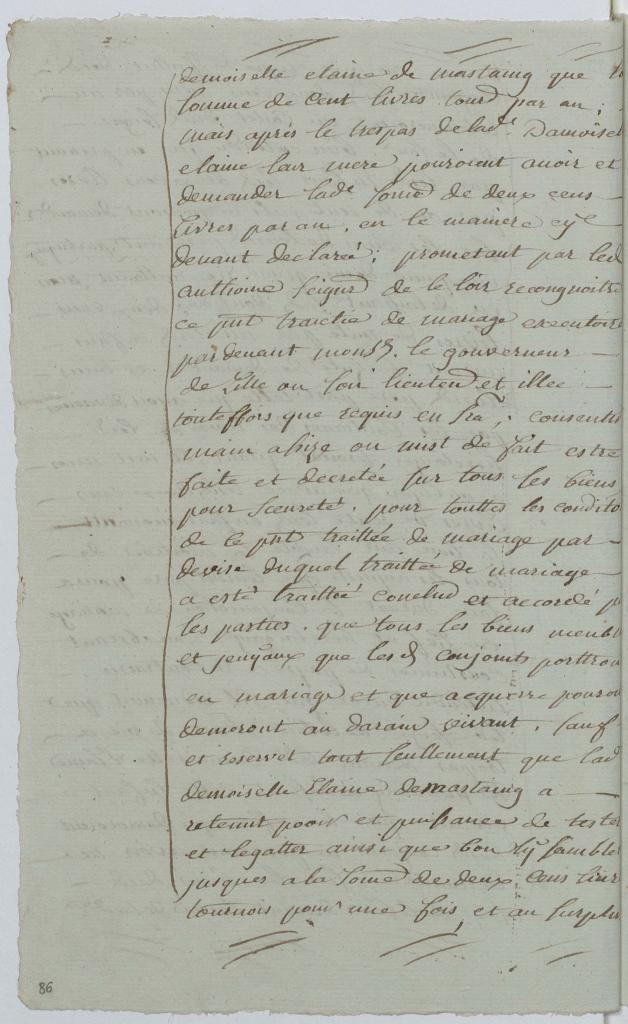 demoiselle elaine de mastaing que
somme de Cent livres tourd par an ;
mais aprés le trespas de lad.e Damoisel
elaine leur mere pouroient avoir et
demander lad.e somd de deux cens —
livres par an . en le maniere cy
devant declareé ; prometant par led
anthoine seignr de le loir recongnoitre
ce pnt traictie de mariage executoire
pardevant monsr. le gouverneur —
de Lille ou son lieutend et illec —
touteffois que requis en sra , consentir
main assize ou mist de fait estre
faite et decretée sur tous ses biens
pour sceureté . pour touttes les condito
de ce pnt traittée de mariage par —
devise duquel traittié de mariage —
a esté traittié conclud et accordé p
les parties . que tous les biens meubl
et jeuyaux que lesd conjoints portero
en mariage et que acquerre pouron
demeront au darain vivant . sauf
et reservet tout seullement que lad
demoiselle Elaine de mastaing a —
retenut pooir et puissance de tester
et legatter ainsi que bon luy semble
jusques a la some de deux Cens livr
tournois pour une fois et au surplu
86